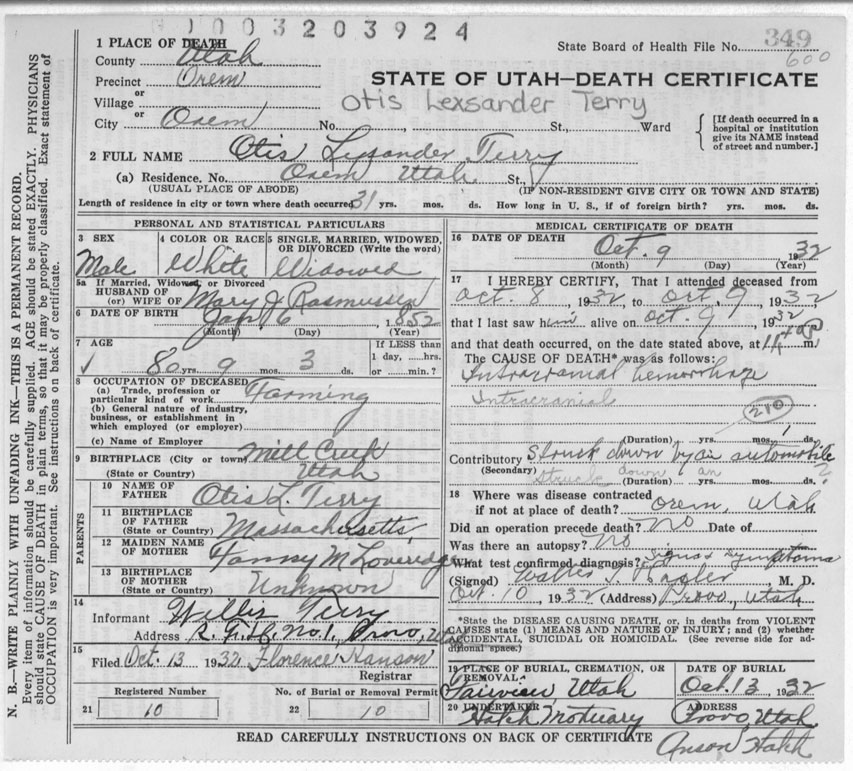 1003203924
1 PLACE OF DEATH
County Utah
State Board of Health File No. 349
600
Precinct Orem
STATE OF UTAH—DEATH CERTIFICATE
or
Village
Otis Lexsander Terry
or
City Orem No. , St., Ward
{ [If death occurred in a hospital or institution give its NAME instead of street and number.]
2 FULL NAME Otis Lysander Terry
(a) Residence. No. Orem Utah St.,
(USUAL PLACE OF ABODE) (IF NON-RESIDENT GIVE CITY OR TOWN AND STATE)
Length of residence in city or town where death occurred 31 yrs. mos. ds. How long in U. S., if of foreign birth? yrs. mos. ds.
PERSONAL AND STATISTICAL PARTICULARS
3 SEX
Male
4 COLOR OR RACE
White
5 SINGLE, MARRIED, WIDOWED,
OR DIVORCED (Write the word)
Widowed
5a If Married, Widowed or Divorced
HUSBAND OF
(or) WIFE OF Mary J Rasmussen
6 DATE OF BIRTH Jan 6 1852
(Month) (Day) (Year)
7 AGE
80 yrs. 9 mos. 3 ds.
If LESS than
1 day, ....hrs.
or ....min.?
8 OCCUPATION OF DECEASED
(a) Trade, profession or
particular kind of work Farming
(b) General nature of industry,
business, or establishment in
which employed (or employer)
(c) Name of Employer
9 BIRTHPLACE (City or town) Mill Creek
(State or Country) Utah
PARENTS
10 NAME OF
FATHER Otis L. Terry
11 BIRTHPLACE
OF FATHER
(State or Country) Massachusetts
12 MAIDEN NAME
OF MOTHER Fanny M Loveridge
13 BIRTHPLACE
OF MOTHER
(State or Country) Unknown
14
Informant Willis Terry
Address R.F.D. No. 1, Provo, Utah
15
Filed Oct. 13 1932 Florence Hanson
Registrar
Registered Number
21 10
No. of Burial or Removal Permit
22 10
MEDICAL CERTIFICATE OF DEATH
16 DATE OF DEATH Oct. 9 1932
(Month) (Day) (Year)
17 I HEREBY CERTIFY, That I attended deceased from
Oct. 8, 1932 to Oct. 9, 1932
that I last saw him alive on Oct. 9, 1932
and that death occurred, on the date stated above, at m.
The CAUSE OF DEATH* was as follows:
Intracranial hemorrhage
Intracranial
210
(Duration) yrs. mos. ds.
Contributory Struck down by an automobile
(Secondary) struck down an
(Duration) yrs. mos. ds. ?
18 Where was disease contracted
if not at place of death? Orem, Utah
Did an operation precede death? No Date of
Was there an autopsy? No
What test confirmed diagnosis? Signs & symptoms
(Signed) Walter T. Hasler, M. D.
Oct. 10, 1932 (Address) Provo, Utah
*State the DISEASE CAUSING DEATH, or, in deaths from VIOLENT
CAUSES state (1) MEANS AND NATURE OF INJURY; and (2) whether
ACCIDENTAL, SUICIDAL OR HOMICIDAL. (See reverse side for ad-
ditional space.)
19 PLACE OF BURIAL, CREMATION, OR
REMOVAL
Fairview Utah
DATE OF BURIAL
Oct. 13, 1932
20 UNDERTAKER
Hatch Mortuary
ADDRESS
Provo, Utah
Anson Hatch
READ CAREFULLY INSTRUCTIONS ON BACK OF CERTIFICATE
N. B.—WRITE PLAINLY WITH UNFADING INK—THIS IS A PERMANENT RECORD.
Every item of information should be carefully supplied. AGE should be stated EXACTLY. PHYSICIANS
should state CAUSE OF DEATH in plain terms, so that it may be properly classified. Exact statement of
OCCUPATION is very important. See instructions on back of certificate.